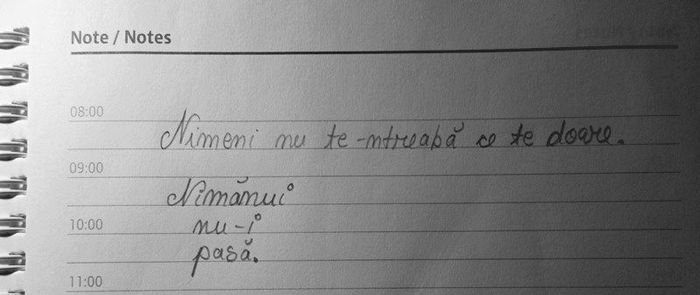 Note / Notes
08:00
Nimeni nu te-ntreabă ce te doare.
09:00
Nimănui
10:00
nu-i
pasă.
11:00